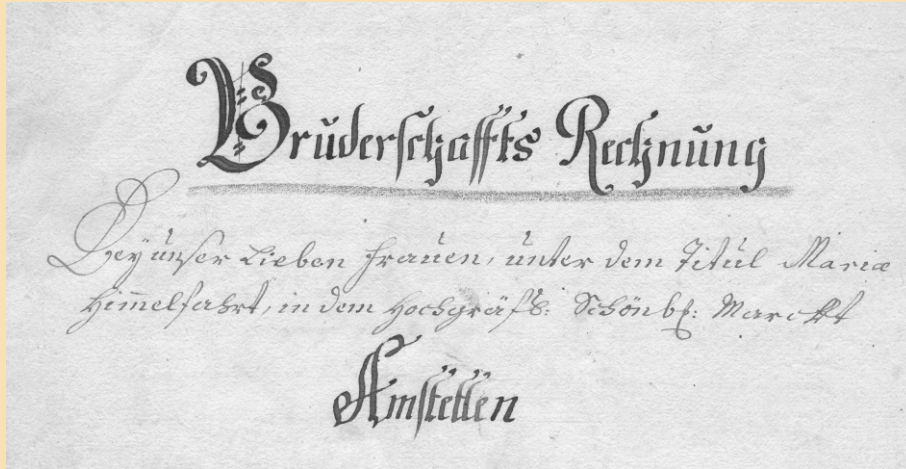 Bruderschaffts Rechnung
Bey unser Lieben Frauen, unter dem Titul Mariæ
Himmelfahrt, in dem Hochgräfl: Schönb: Marckt
Amstetten